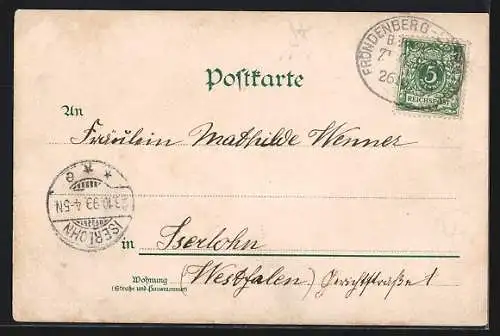 FRÖNDENBERG-
Postkarte
5
REICHSPOST
An
Fräulein Mathilde Wenner
ISERLOHN
99. 4-5N
in Iserlohn
Wohnung
(Straße und Hausnummer)
(Westfalen) Gerichtstraße 1